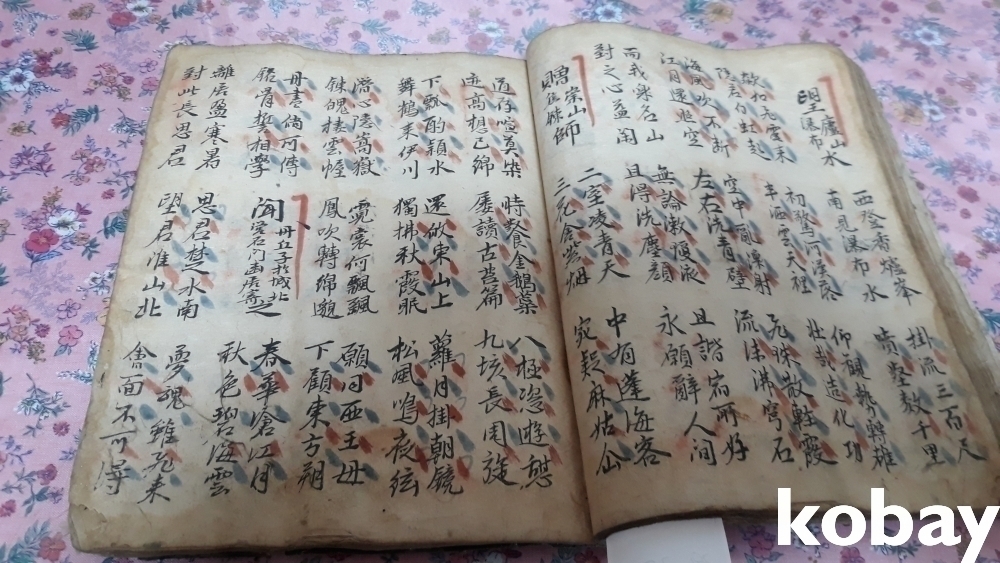 望廬山水
瀑布
西登香爐峯
南見瀑布水
掛流三百尺
噴壑數千里
欻如光雲來
隱若白虹起
初驚河漢落
半洒雲天裡
仰觀勢轉雄
壯哉造化功
海風吹不斷
江月還照空
空中亂潨射
左右洗青壁
飛珠散輕霞
流沫沸穹石
而我樂名山
對之心益閑
無論漱瓊液
且得洗塵顏
且諧宿所好
永願辭人間
贈嵩山焦鍊師
二室凌青天
三花含紫烟
中有蓬海客
宛疑麻姑仙
道存喧莫染
迹高想已綿
時餐金鵝蘂
屢讀古苔篇
八極恣遊憩
九垓長周旋
下瓢酌潁水
舞鶴來伊川
還啟東山上
獨拂秋霞眠
蘿月掛朝鏡
松風鳴夜絃
潛心陵嵩嶽
鍊魄棲雲幄
霓裳何飄飄
鳳吹轉綿邈
願同西王母
下顧東方朔
丹書倘可傳
鏤骨誓相學
聞丹丘子於城北
營石門幽居寄之
春華滄江月
秋色碧海雲
離居盈寒暑
對此長思君
思君楚水南
望君淮山北
夢魂雖飛來
會面不可得
kobay